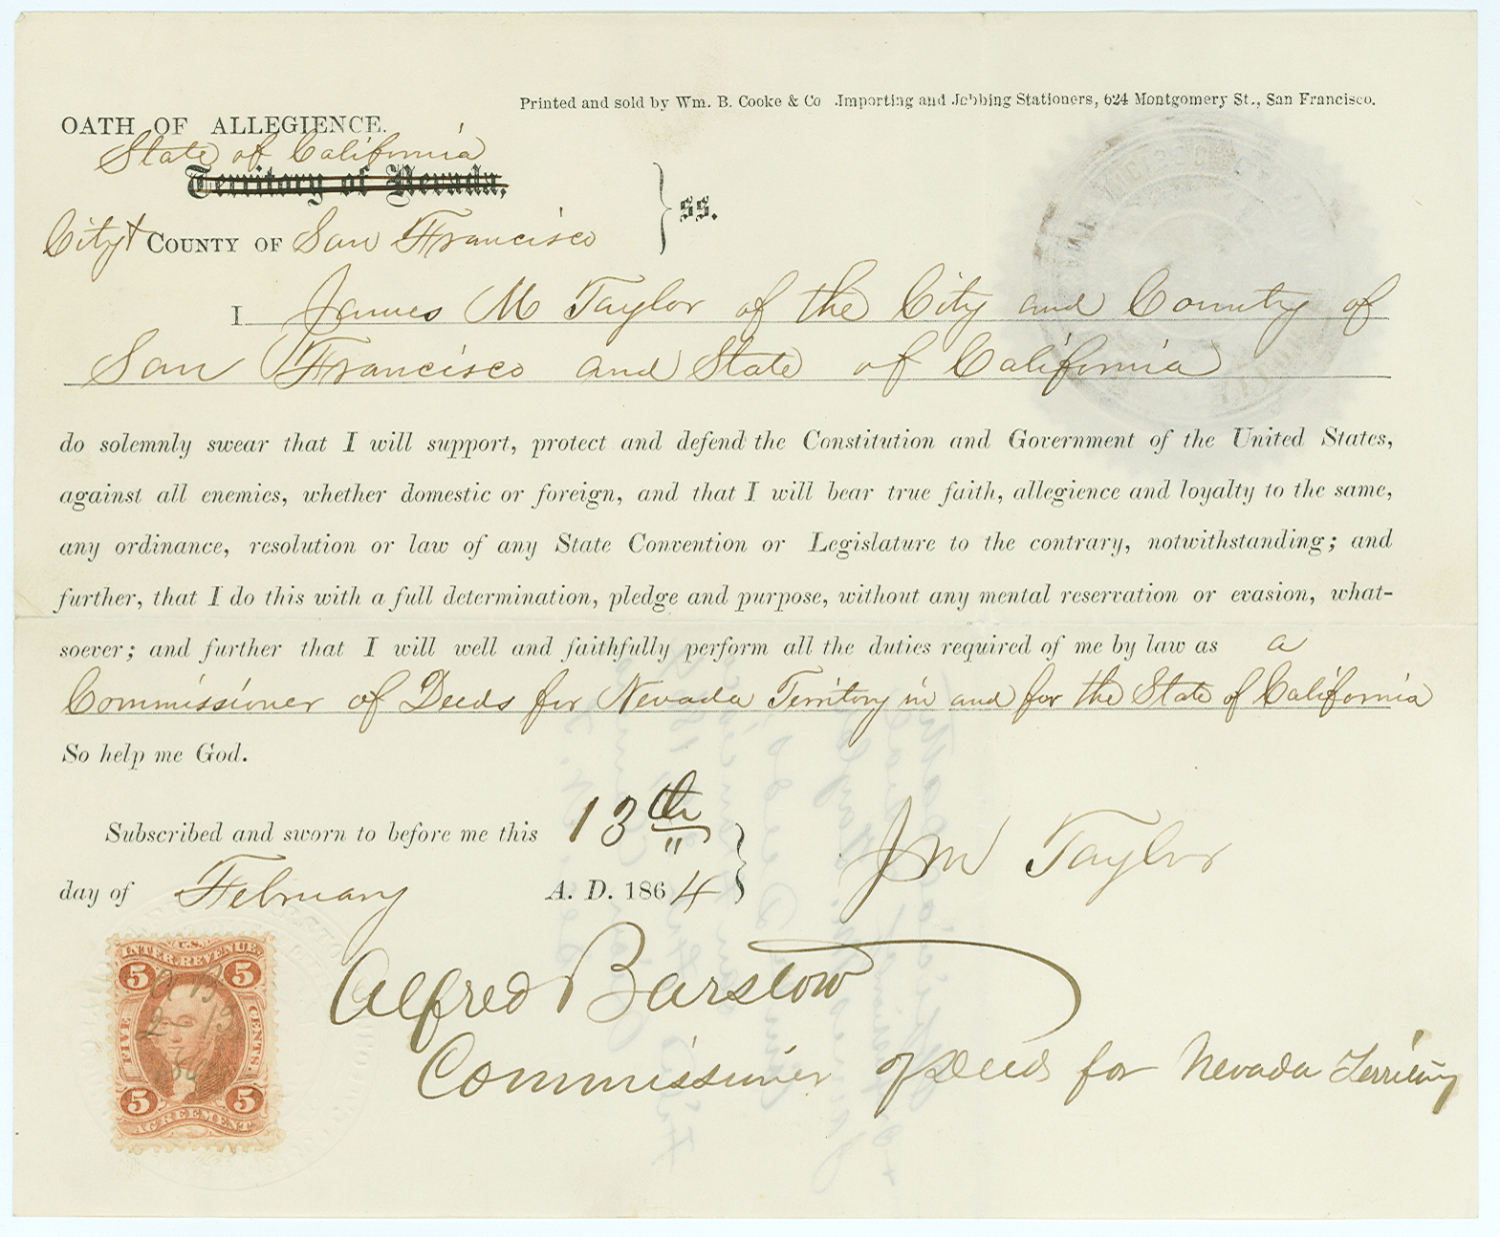 Printed and sold by Wm. B. Cooke & Co Importing and Jobbing Stationers, 624 Montgomery St., San Francisco.
OATH OF ALLEGIENCE.
State of California
Territory of Nevada,
ss.
City & COUNTY OF San Francisco
I James M Taylor of the City and County of
San Francisco and State of California
do solemnly swear that I will support, protect and defend the Constitution and Government of the United States,
against all enemies, whether domestic or foreign, and that I will bear true faith, allegience and loyalty to the same,
any ordinance, resolution or law of any State Convention or Legislature to the contrary, notwithstanding; and
further, that I do this with a full determination, pledge and purpose, without any mental reservation or evasion, what-
soever; and further that I will well and faithfully perform all the duties required of me by law as a
Commissioner of Deeds for Nevada Territory in and for the State of California
So help me God.
Subscribed and sworn to before me this 13th
day of February A. D. 1864
J M Taylor
Alfred Barstow
Commissioner of Deeds for Nevada Territory
U.S.
INTER. REVENUE.
5 5
A B
2-13
64
FIVE CENTS.
5 5
AGREEMENT